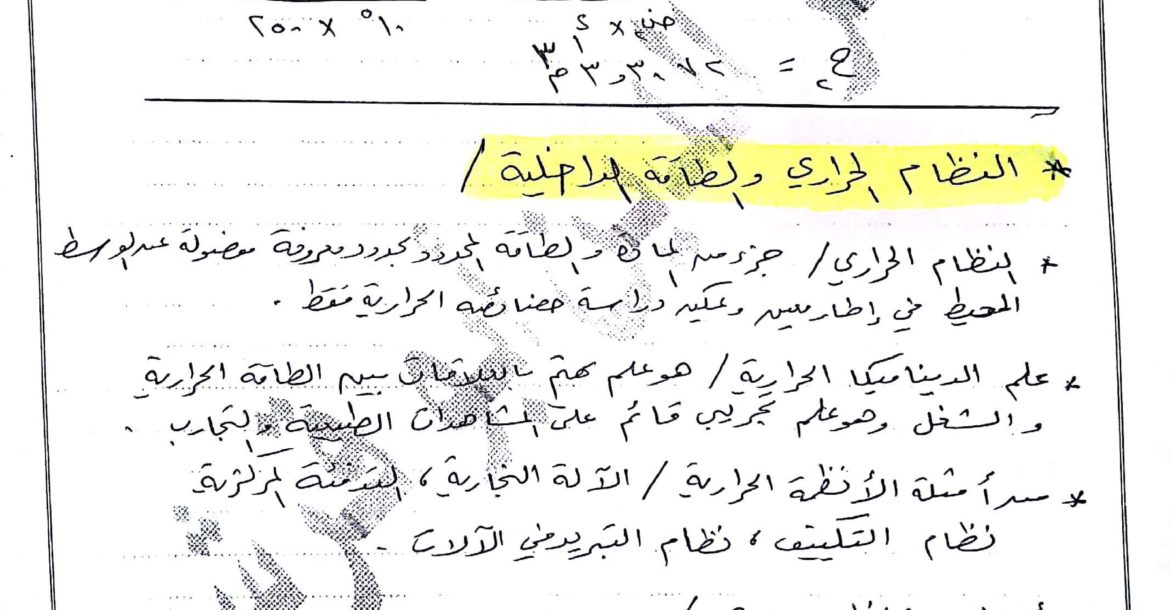 ١٠° × ٢٠٠
ض٢ × ٤
ح٢ = ٣,٠٧٢ م٣
* النظام الحراري والطاقة الداخلية /
* النظام الحراري / جزء من المادة والطاقة المحدد بحدود معروفة معزولة عن الوسط
المحيط في إطار معين ويمكن دراسة خصائصه الحرارية فقط .
* علم الديناميكا الحرارية / هو علم يهتم بالعلاقات بين الطاقة الحرارية
والشغل وهو علم تجريبي قائم على المشاهدات الطبيعية والتجارب .
* من أمثلة الأنظمة الحرارية / الآلة البخارية ، التدفئة المركزية
نظام التكييف ، نظام التبريد في الآلات .